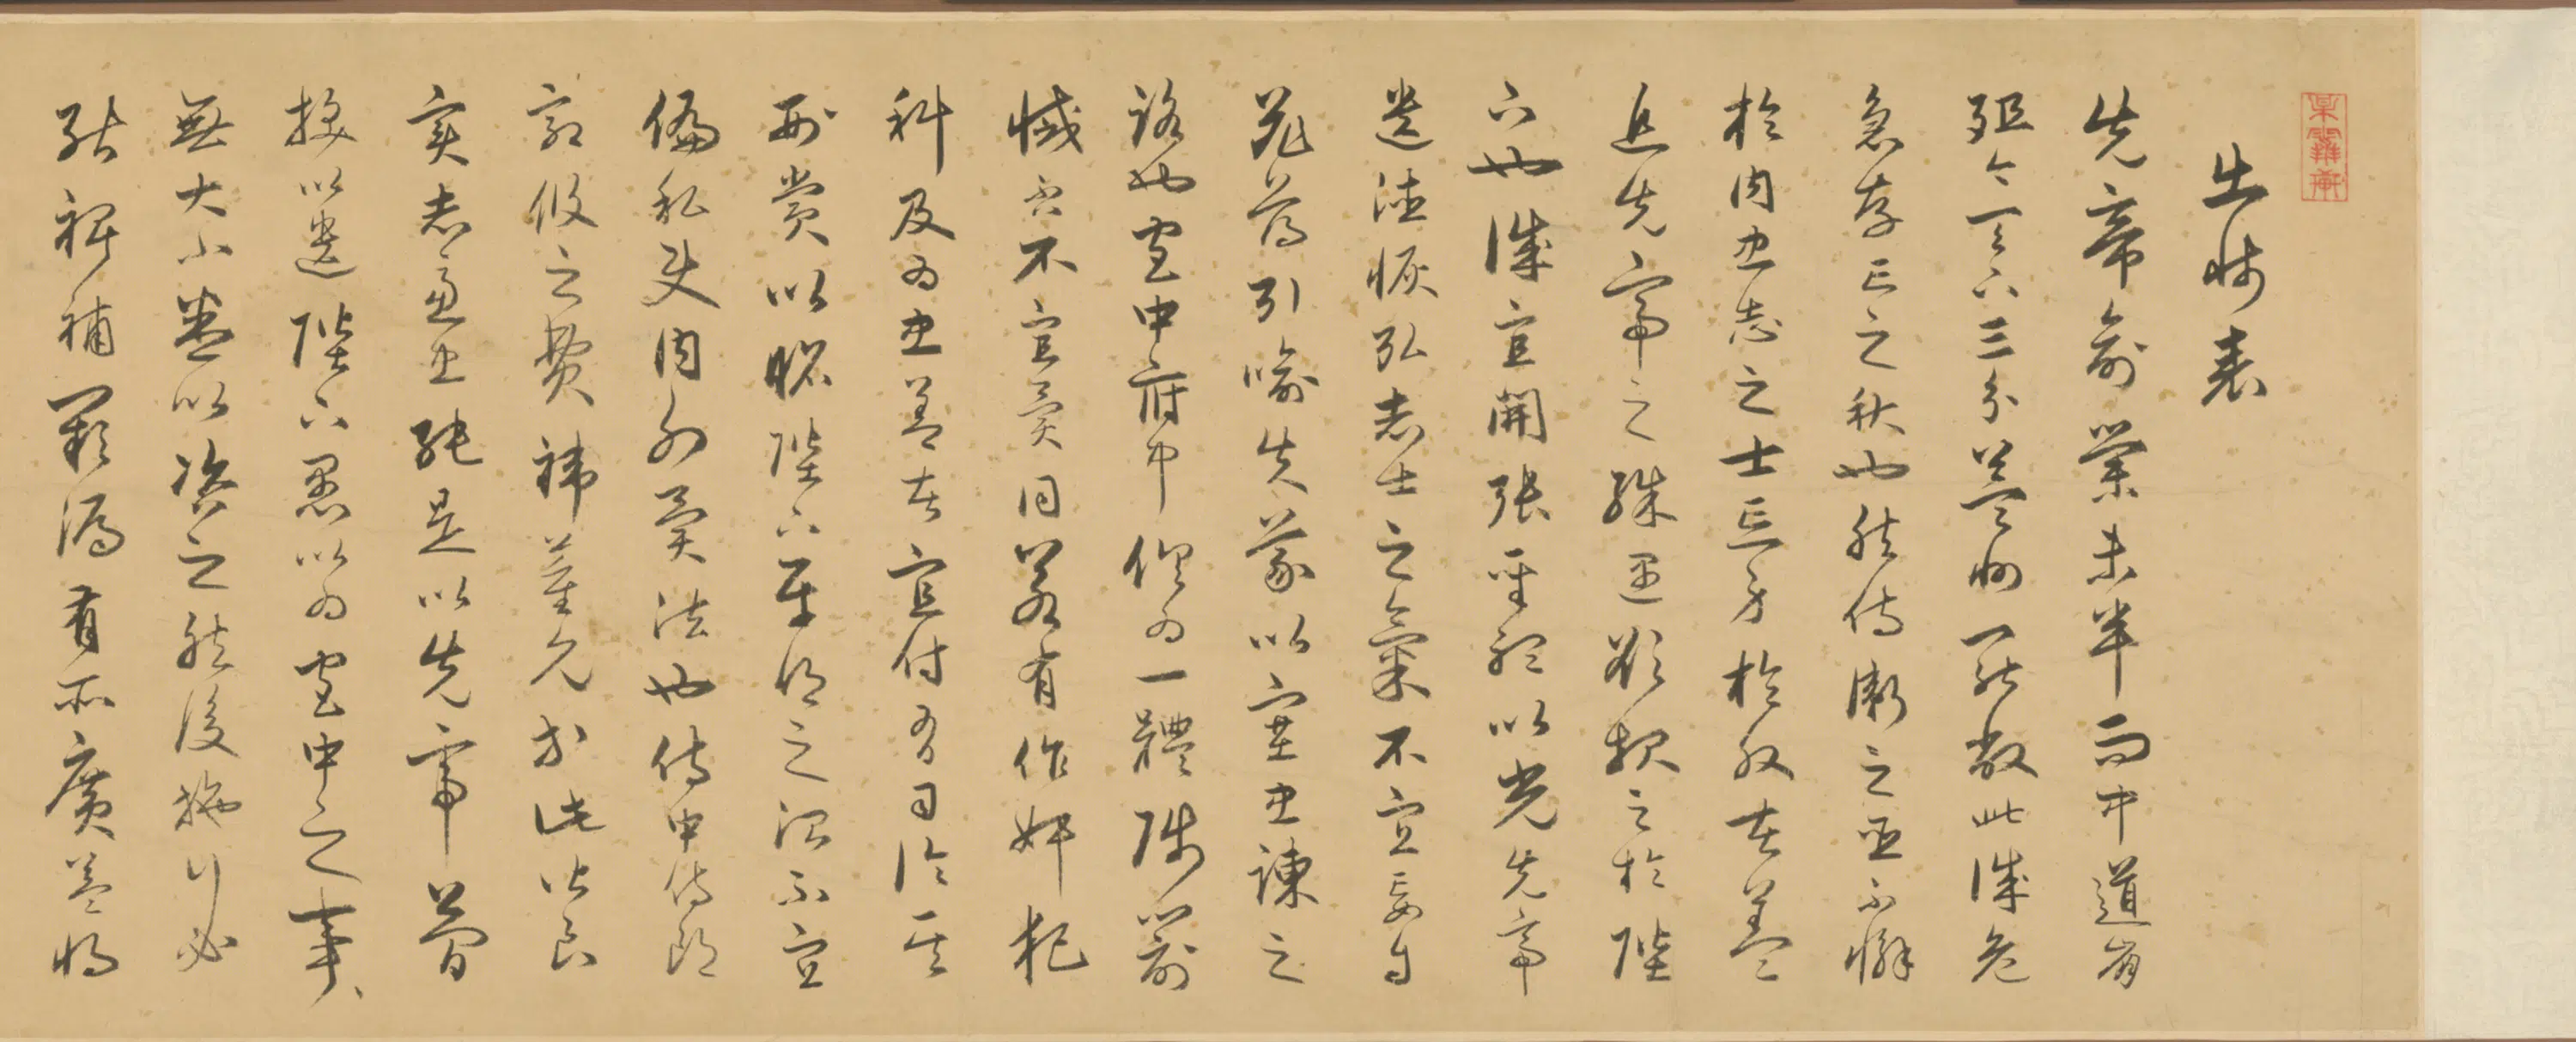 出師表
先帝創業未半而中道崩
殂今天下三分益州罷敝此誠危
急存亡之秋也然侍衛之臣不懈
於內忠志之士亡身於外者蓋
追先帝之殊遇欲報之於陛
下也誠宜開張聖聽以光先帝
遺德恢弘志士之氣不宜妄自
菲薄引喻失義以塞忠諫之
路也宮中府中俱為一體陟罰
臧否不宜異同若有作奸犯
科及為忠善者宜付有司論其
刑賞以昭陛下平明之治不宜
偏私使內外異法也侍中侍郎
郭攸之費禕董允等此皆良
實志慮忠純是以先帝簡
拔以遺陛下愚以為宮中之事
無大小悉以咨之然後施行必
能裨補闕漏有所廣益將